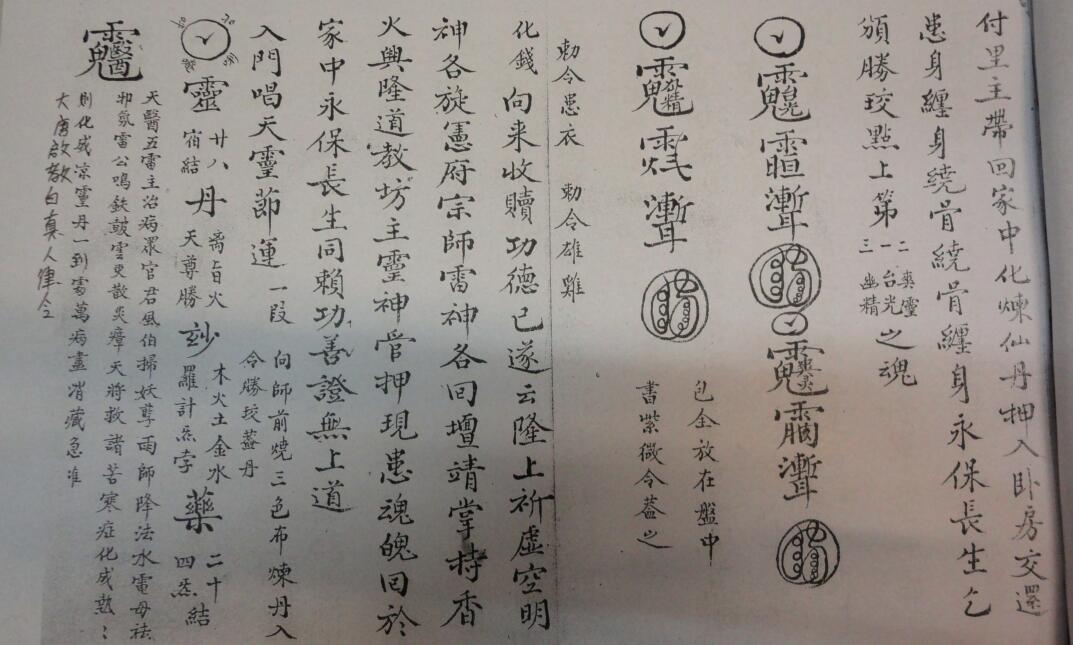 付里主帶回家中化煉仙丹押入卧房交還
患身纏身繞骨繞骨纏身永保長生乞
頒勝珓點上第
二 爽靈
一 台光
三 幽精
之魂
勅令患衣 勅令雄雞
包全放在盤中
書紫微令蓋之
化錢 向来收贖功德已遂云隆上祈虛空明
神各旋憲府宗師雷神各回壇靖掌持香
火興隆道教坊主靈神管押現患魂魄回於
家中永保長生同賴功善證無上道
入門唱天靈節運一段
向師前燒三色布煉丹入
令勝珓蓋丹
靈
廿八
宿結
丹
火
天尊勝
玅
木火土金水
羅計炁孛
藥
二十
四炁結
天醫五雷主治病眾官君風伯掃妖孽雨師降法水電母祛
邪氛雷公鳴鉄鼓雲更散炎瘴天將救諸苦寒症化成熱
則化成凉靈丹一到處萬病盡消藏急准
大唐啟教白真人律令